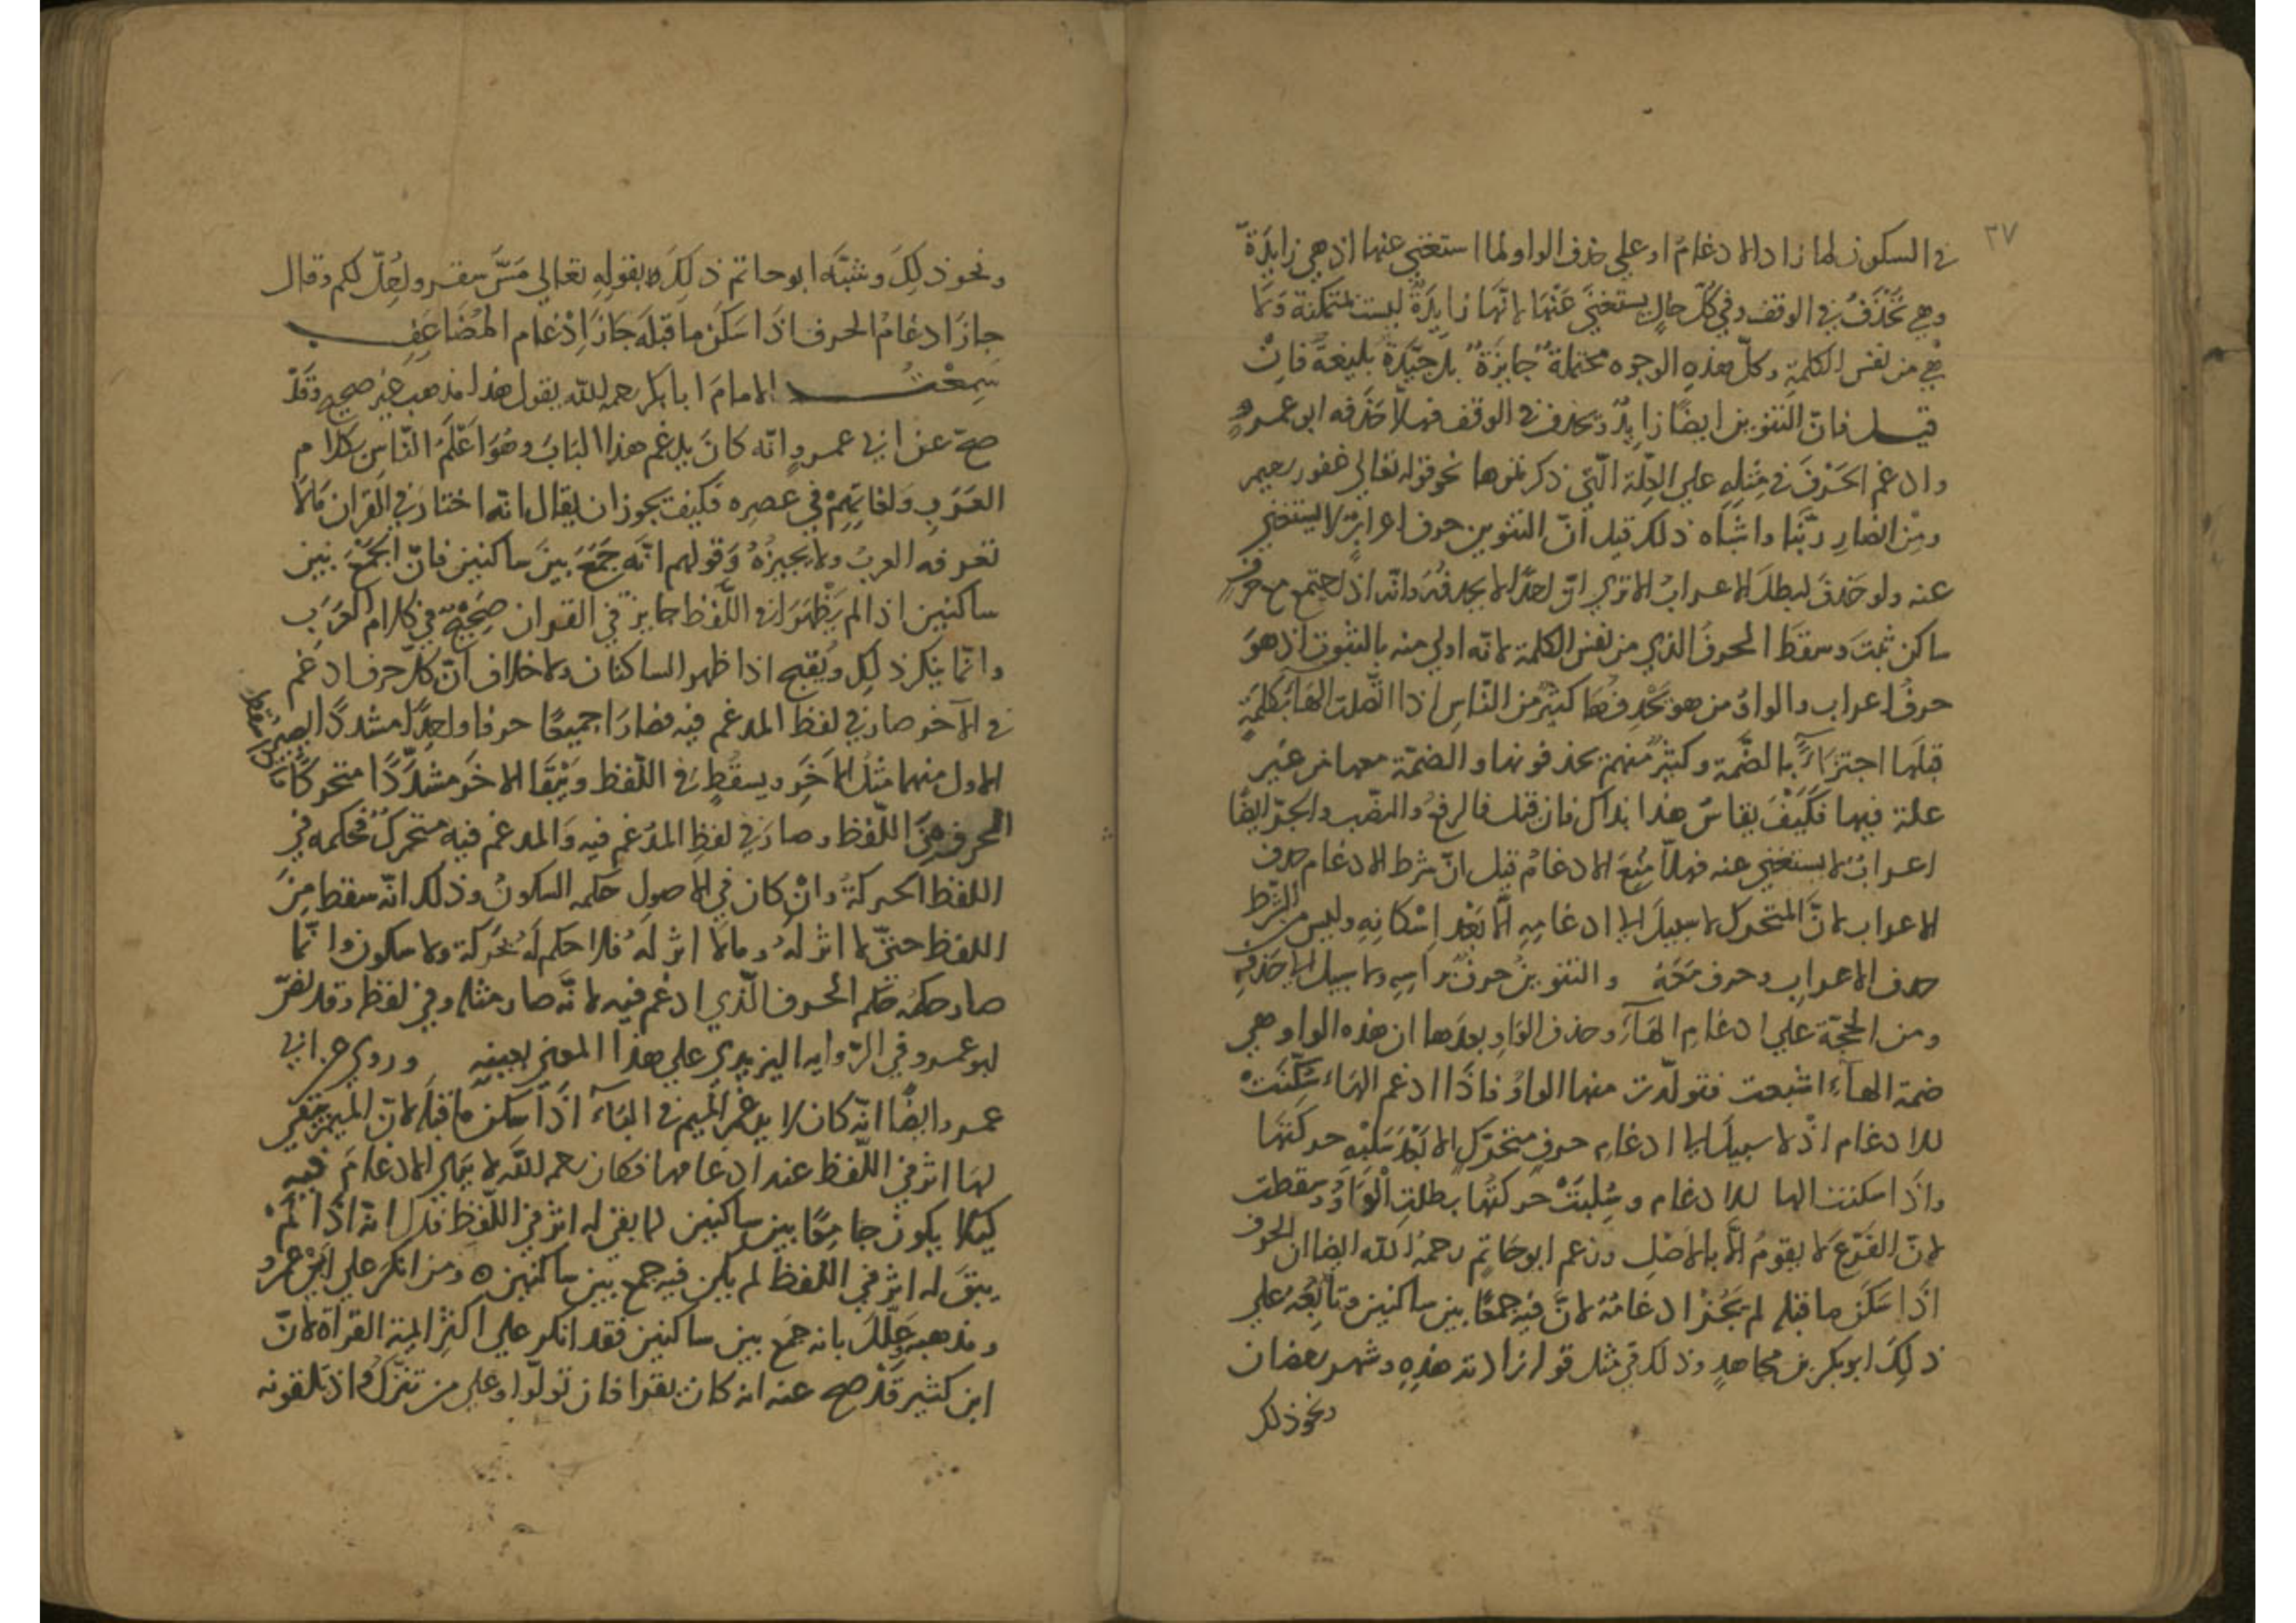 ٣٧
في السكون لما زاد الادغام او علي حذف الواو لما استغني عنها اذ هي زايدة
وهي تحذف في الوقف وفي كل حال يستغني عنها لانها زايدة ليست متمكنة ولا
هي من نفس الكلمة وكل هذه الوجوه محتملة جايزة بل جيّدة بليغة فان
قيل فان التنوين ايضًا زايد وتحذف في الوقف فهلّا حذفه ابو عمرو
وادغم الحرف في مثله علي العلّة الّتي ذكرتموها نحو قوله تعالي غفور رحيم
ومن انصار ربّنا واشباه ذلك قيل انّ التنوين حرف اعراب لا يستغني
عنه ولو حذف لبطل الاعراب الا تري انّ احدًا لا يحذفه وانّه اذا اجتمع مع حرف
ساكن ثبت وسقط الحرف الذي من نفس الكلمة لانّه اولي منه بالثبوت اذ هو
حرف اعراب والواو من هو يحذفها كثير من النّاس اذا اتّصلت الهآ بكلمة
قبلها اجتزاءً بالضّمة وكثير منهم يحذفونها والضمّة معها من غير
علة فيها فكيف يقاس هذا بذاك فان قيل فالرفع والنصب والجرّ ايضًا
اعراب لا يستغني عنه فهلّا منع الادغام قيل انّ شرط الادغام حذف
الاعراب لانّ المتحرك لا سبيل الي ادغامه الّا بعد اسكانه وليس من الشّرط
حذف الاعراب وحرف معه والتنوين حرف براسه ولا سبيل الي حذفه
ومن الحجّة علي ادغام الهآء وحذف الواو بعدها ان هذه الواو هي
ضمة الهآء اشبعت فتولّدت منها الواو فاذا ادغم الهاء سكّنت
للادغام اذ لا سبيل الي ادغام حرف متحرّك الا بعد سلبه حركتها
واذا سكنت الها للادغام وسلبت حركتها بطلت الواو وسقطت
لانّ الفرع لا يقوم الّا بالاصل وزعم ابو حاتم رحمه الله ايضا ان الحرف
اذا سكن ما قبله لم يجز ادغامه لانّ فيه جمعًا بين ساكنين وتابعه علي
ذلك ابو بكر بن مجاهد وذلك في مثل قوله زادته هذه وشهر رمضان
ونحو ذلك
ونحو ذلك وشبّه ابو حاتم ذلك بقوله تعالي مسّ سقر واحلّ لكم وقال
جاز ادغام الحرف اذا سكن ما قبله جاز ادغام المضاعف
سمعت الامام ابا بكر رحمه الله يقول هذا مذهب غير صحيح وقد
صحّ عن ابي عمرو انّه كان يدغم هذا الباب وهو اعلم النّاس بكلام
العرب ولغاتهم في عصره فكيف يجوز ان يقال انّه اختار في القران ما لا
تعرفه العرب ولا يجيزه وقولهم انّه جمع بين ساكنين فانّ الجمع بين
ساكنين اذا لم يظهرا في اللّفظ جايز في القران صحيح في كلام العرب
وانّما ينكر ذلك ويقبح اذا ظهر الساكنان ولا خلاف انّ كلّ حرف ادغم
في الآخر صار في لفظ المدغم فيه فصارا جميعًا حرفا واحدًا مشددًا يصير
الاول منهما مثل الآخر ويسقط في اللّفظ ويبقا الاخر مشدّدًا متحركًا
الحرف من اللّفظ وصار في لفظ المدغم فيه والمدغم فيه متحرك فحكمه في
اللفظ الحركة وان كان في الاصول حكمه السكون وذلك انّه سقط من
اللفظ حتّي لا اثر له وما لا اثر له فلا حكم له بحركة ولا سكون وانّما
صار حكمه حكم الحرف الّذي ادغم فيه لانّه صار مثله وفي لفظ وقد نصّ
ابو عمرو في الرّوايه اليزيدي علي هذا المعني بعينه وروي عن ابي
عمرو ايضًا انّه كان لا يدغم الميم في البآء اذا سكن ما قبله لانّ الميم يبقي
لها اثر في اللّفظ عند ادغامها فكان رحمه الله لا يري الادغام فيه
كيلا يكون جامعًا بين ساكنين لما بقي له اثر في اللّفظ فدل انه اذا لم
يبق له اثر في اللفظ لم يكن فيه جمع بين ساكنين ه ومن انكر علي ابي عمرو
ومذهبه وعلّل بانه جمع بين ساكنين فقد انكر علي اكثر ايمة القراة لانّ
ابن كثير قد صح عنه انه كان يقرا فان تولّوا وعلي من تنزّل واذ تلقونه